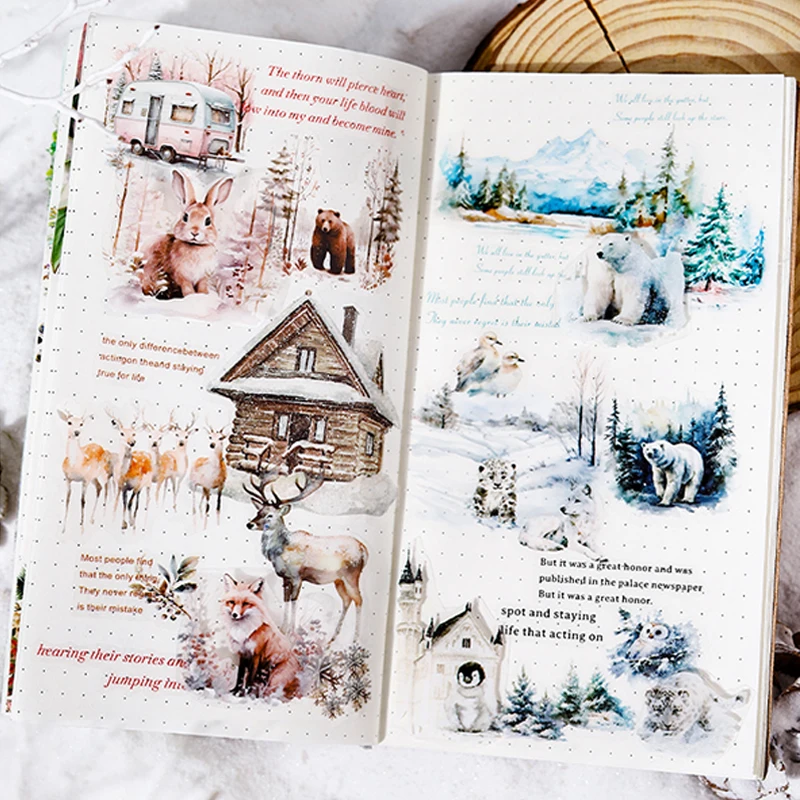 The thorn will pierce heart,
and then your life blood will
into my and become mine.
the only differencebetween
acting on the and staying
true for life
Most people find
that the only thing
They never
is their mistake
hearing their stories an
jumping in
We all live in the gutter, but
Some people still look up the stars
We all live in the gutter, but
Some people still look up the
Most people find that the only
They never regret is their mistake
But it was a great honor and was
published in the palace newspaper
But it was a great honor.
spot and staying
life that acting on